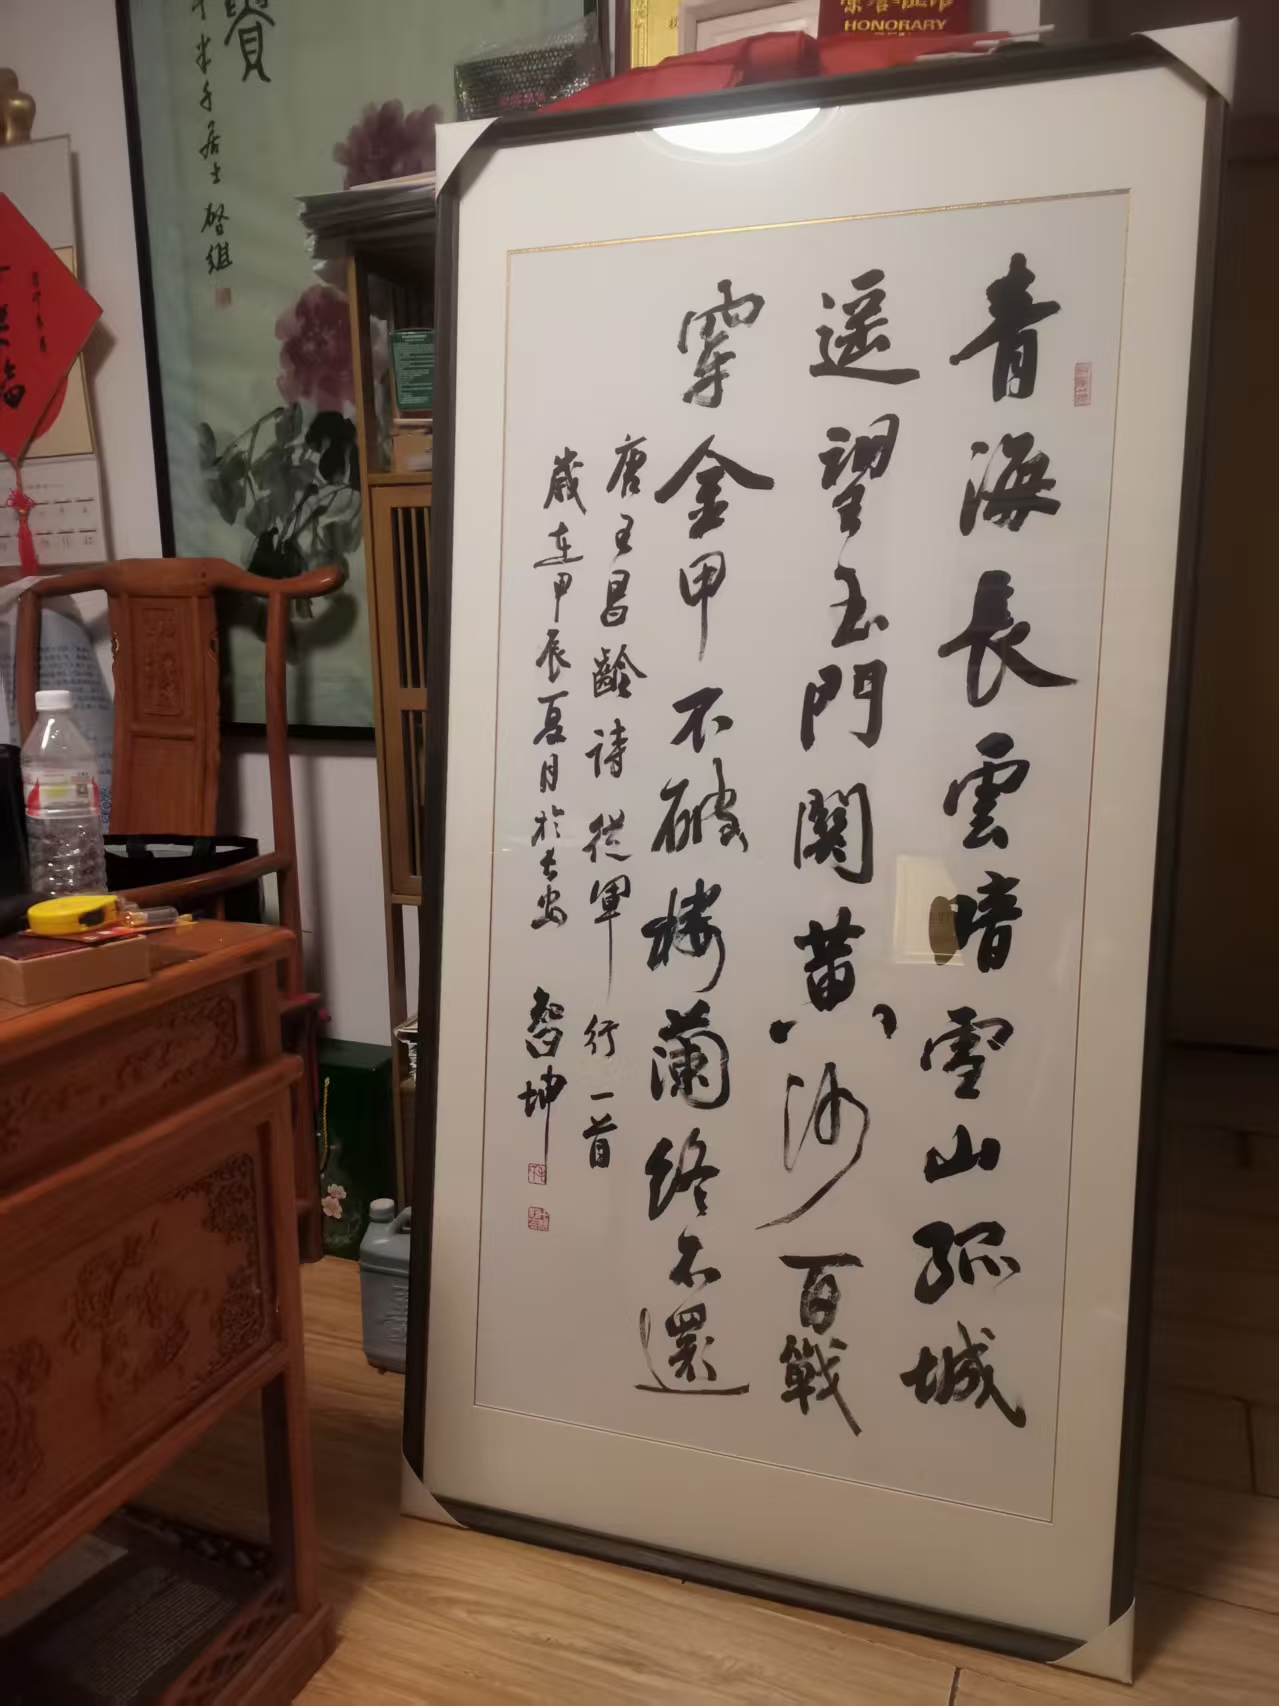 青海長雲暗雪山孤城
遥望玉門関黄沙百戰
穿金甲不破楼蘭終不還
唐王昌齡詩從軍行一首
歲在甲辰夏月於長安
智坤
HONORARY
半千居士啓组